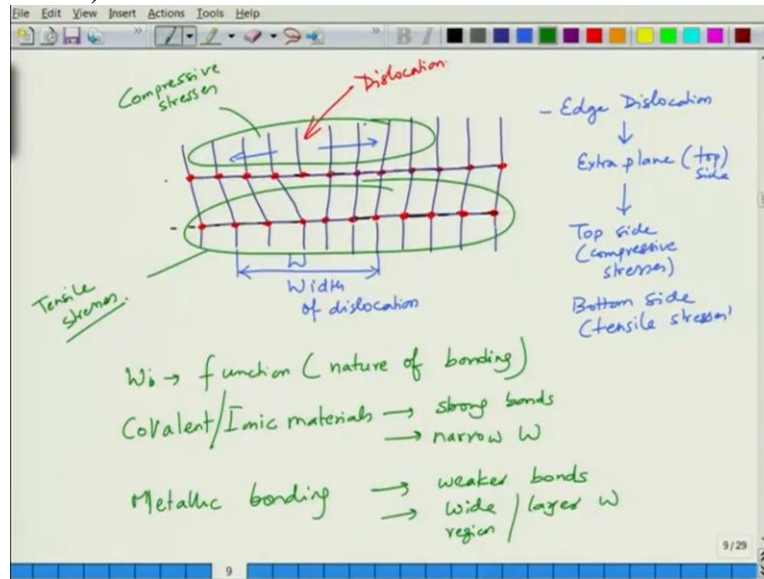 File Edit View Insert Actions Tools Help
Compressive
stresses
Dislocation
- Edge Dislocation
Extra plane (top)
side
Top side
(compressive
stresses)
Bottom side
(tensile stresses)
W
Width
of dislocation
Tensile
stresses.
→ function (nature of bonding)
Covalent/Ionic materials → strong bonds
→ narrow W
Metallic bonding → weaker bonds
→ wide / layer W
region
9/29
9